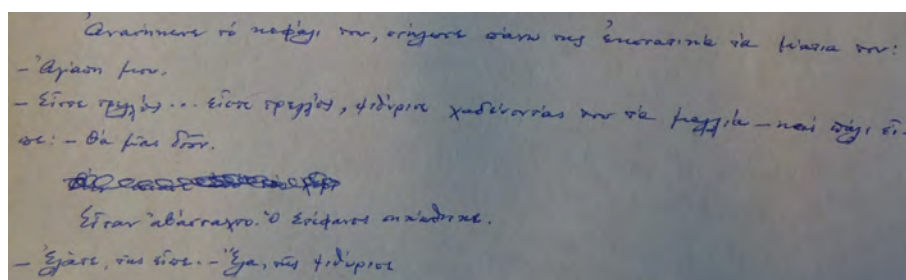 Ἀνασήκωσε τὸ κεφάλι του, στήλωσε πάνω της ἐκστατικὰ τὰ μάτια του:
– Ἀγάπη μου.
– Εἶστε τρελλός... εἶστε τρελλός, ψιθύρισε χαϊδεύοντάς του τὰ μαλλιὰ – καὶ πάλι εἶ-
πε: – Θὰ μᾶς δοῦν.
Εἶταν ἀβάσταχτο. Ὁ Στέφανος σηκώθηκε.
– Ἐλᾶτε, τῆς εἶπε. – Ἔλα, τῆς ψιθύρισε